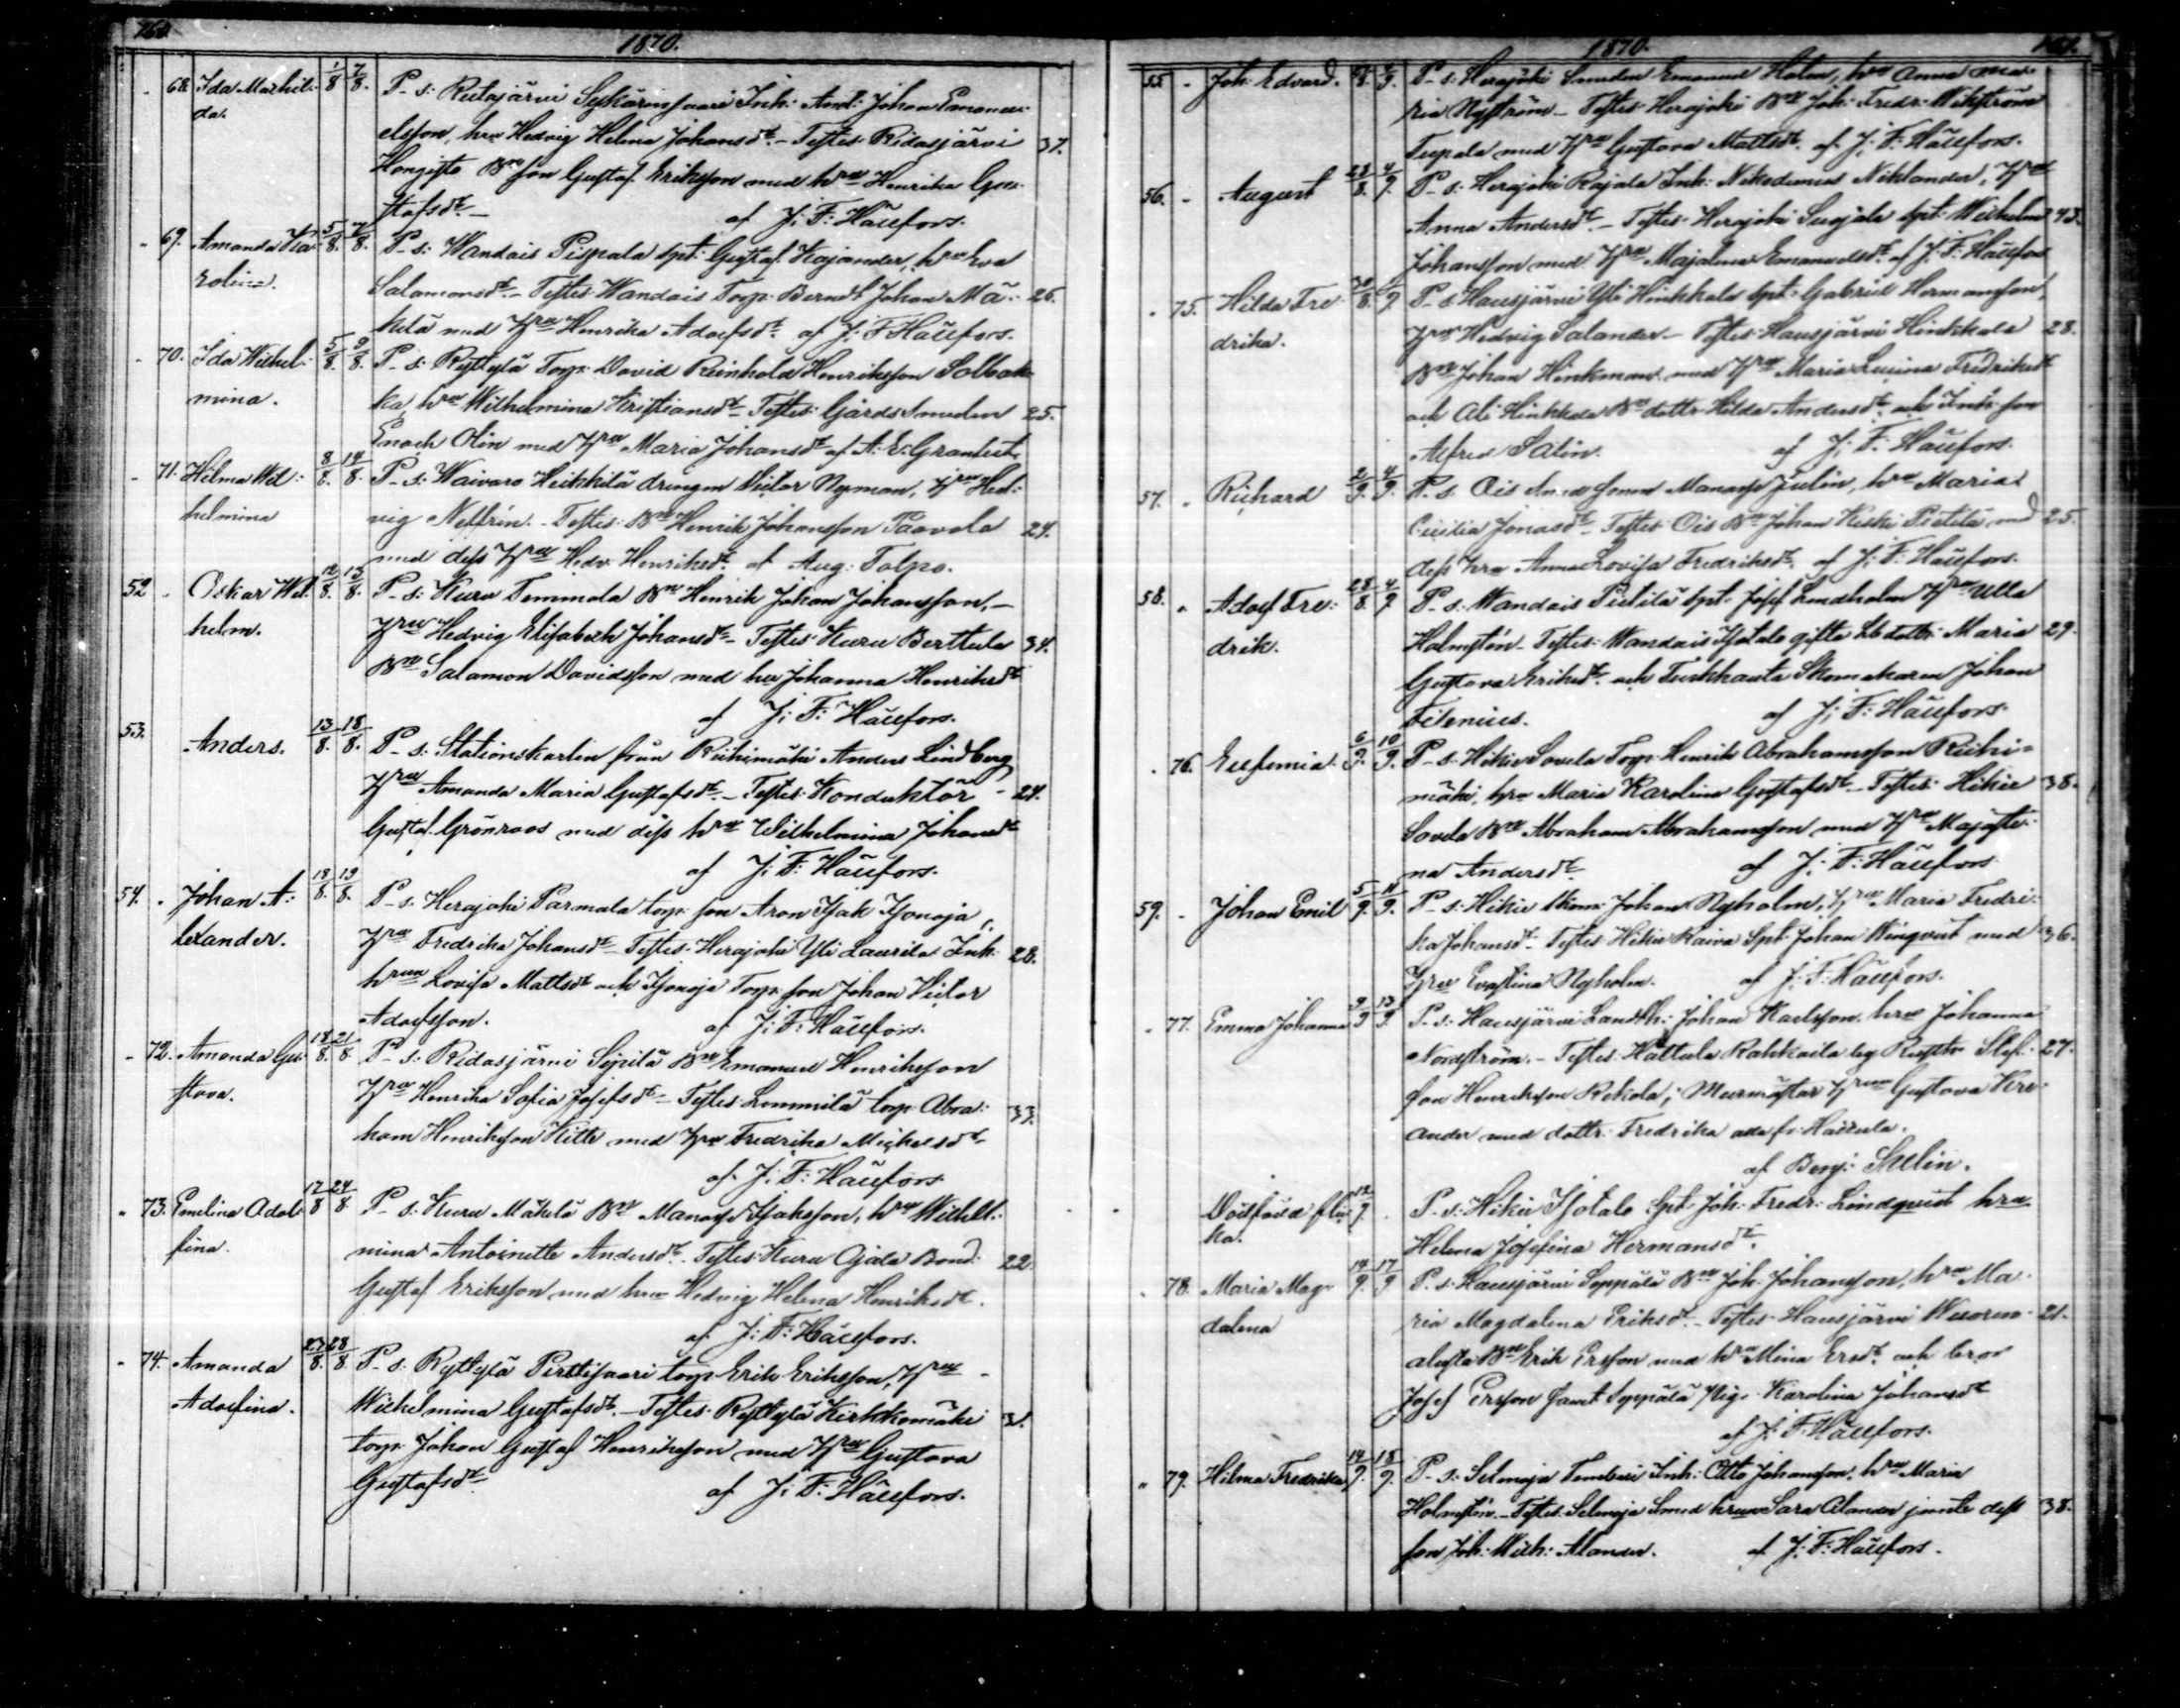 160.
1870.
68. Ida Mathil- 1/8 7/8. P. s: Ridasjärvi Syskärinsaari Inh: And: Johan Emanu-
da. elsson, hu Hedvig Helena Johansdr. - Testes Ridasjärvi 37.
Hongisto Bde son Gustaf Eriksson med hru Henrika Gu-
stafsdr. - af J: F: Hällfors.
69. Amanda Ka- 5/8. 7/8. P. s: Wandais Pispala spt: Gustaf Kajander, hru Eva
rolina. Salamonsdr. - Testes Wandais Torp. Berndt Johan Mä- 26.
kelä med Hru Henrika Adolfsdr. af J: F Hällfors.
70. Ida Wilhel- 5/8. 9/8. P. s: Ryttylä Torp. David Reinhold Henriksson Solbak-
mina. ka, hru Wilhelmina Kristiansdr - Testes Gårds Smeden 25.
Enoch Olin med Hru Maria Johansdr af A. E. Granlund.
71. Hilma Wil- 8/8. 14/8. P. s: Waivaro Heikkilä drengen Victor Nyman, Hru Hed-
helmina vig Neffrin. - Testes Bde Henrik Johansson Paavola 24.
med dess Hru Hedv: Henriksdr. af Aug: Talpo.
52. Oskar Wil- 12/8. 13/8. P. s: Kuru Temmola Bde Henrik Johan Johansson, -
helm. Hru Hedvig Elisabeth Johansdr - Testes Kuru Berttula 34.
Bde Salamon Davidsson med hu Johanna Henriksdr
af J: F: Hällfors.
53. Anders. 13/8. 18/8. P. s: Stationskarlen från Riihimäki Anders Lindberg
Hru Amanda Maria Gustafsdr. - Testes Konduktör - 24.
Gustaf Grönroos med dess hru Wilhelmina Johansdr
af J: F: Hällfors.
54. Johan A- 18/8. 19/8. P. s. Herajoki Parmala torp. son Aron Isak Isonoja,
lexander. Hru Fredrika Johansdr - Testes Herajoki Yli Laurila Inh. 28.
hrun Lovisa Mattsdr och Isonoja Torp. son Johan Victor
Adolfsson. af J: F: Hällfors.
72. Amanda Gu- 18/8. 21/8. P. s: Ridasjärvi Sipilä Bde Emanuel Henriksson
stava. Hru Henrika Sofia Josefsdr - Testes Lemmilä torp. Abra- 33.
ham Henriksson Kitti med Hru Fredrika Michelsdr
af. J: F: Hällfors
73. Emelina Adol- 17/8 24/8. P. s. Kuru Mäkelä Bde Manasse Isaksson, hru Wilhel-
fina. mina Antoinette Andersdr. Testes Kuru Ojala Bond. 22.
Gustaf Eriksson med hru Hedvig Helena Henriksdr.
af J: F: Hällfors.
74. Amanda 27/8. 28/8. P. s. Ryttylä Perttisaari torp. Erik Eriksson, Hru -
Adolfina. Wilhelmina Gustafsdr. - Testes Ryttylä Kirkkomäki 31.
torp. Johan Gustaf Henriksson med Hru Gustava
Gustafsdr. af J: F: Hällfors.
1870. 161.
55. Joh: Edvard. P. s: Herajoki Smeden Emanuel Holm, hru Anna Ma-
ria Nyström - Testes Herajoki Bde Joh: Fredr: Wikström
Teepala med Hru Gustava Mattsdr. af J: F: Hällfors.
56. August 28/8. 4/9. P. s: Herajoki Rajala Inh: Nikodemus Niklander, Hru
Anna Andersdr. - Testes Herajoki Suojala spt: Wilhelm 43.
Johansson med Hru Majalena Emanuelsdr. af J: F: Hällfors
75. Hilda Fre- P. s Hausjärvi Yli Hinkkala spt: Gabriel Hermansson,
drika. Hru Hedvig Salander - Testes Hausjärvi Hinkkala 28.
Bde Johan Hinkman med Hru Maria Lusina Fredriksdr
och Ali Hinkkala Bde dottr. Hilda Andersdr och Inh: son
Alfred Salin. af J: F: Hällfors.
57. Richard 2/9. 4/9. P. s. Ois Manasse Julin, hru Maria
Cecilia Jonasdr - Testes Ois Bde Johan Keski Pietilä med 25.
dess hru Anna Lovisa Fredriksdr. af J: F: Hällfors.
58. Adolf Fre- 28/8. 4/9. P. s. Wandais Pietilä spt: Josef Lindholm Hru Ulla
drik. Holmstén - Testes Wandais Isotalo gifta Bd dottr. Maria 29.
Gustava Eriksdr. och Turkhauta Skomakaren Johan
Filenius. af J: F: Hällfors.
76. Eufemia. 6/9. 10/9. P. s: Hikiä Sovela Torp. Henrik Abrahamsson Riihi-
mäki, hru Maria Karolina Gustafsdr. - Testes Hikiä 38.
Sovela Bde Abraham Abrahamsson med Hru Majasti-
na Andersdr. af J: F: Hällfors
59. Johan Emil 5/9. 11/9. P. s: Hikiä Skom: Johan Nyholm, Hru Maria Fredri-
ka Johansdr - Testes Hikiä Kaiva Spt: Johan Winqvist med 36.
Hru Evastina Nyholm. af J: F: Hällfors.
77. Emma Johanna 9/9 13/9. P. s: Hausjärvi Landth: Johan Karlsson hru Johanna
Nordström. - Testes Hattula Rahkoila Stef- 27.
fan Henriksson Rekola, Murmästar Hrun Gustava Ker-
ander med dottr. Fredrika
af Benj: Skelin.
Dödfödd flic- 12/9. P. s. Hikiä Isotalo Spt: Joh: Fredr: Lindqvist hru
ka. Helena Josefina Hermansdr.
78. Maria Mag- 14/9. 17/9 P. s. Hausjärvi Seppälä Bde Joh: Johansson, hru Ma-
dalena ria Magdalena Eriksdr. - Testes Hausjärvi Wuoren- 21.
alusta Bde Erik Ersson med hru Mina Ersdr. och bror
Josef Ersson samt Seppälä Pig. Karolina Johansdr
af J: F: Hällfors.
79. Hilma Fredrika 14/9. 18/9. P. s: Selänoja Temburi Inh: Otto Johansson, hru Maria
Holmstén. - Testes Selänoja Smed hrun Sara Alander jemte dess 38.
son Joh: Wilh: Alander. af J: F: Hällfors.